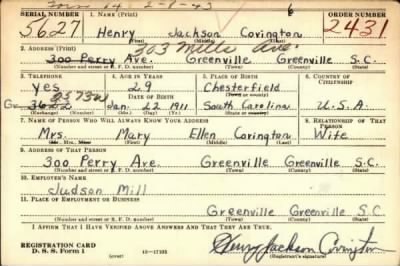 2-8-43 6
SERIAL NUMBER 1. NAME (Print) ORDER NUMBER
5627 Henry Jackson Covington 2431
(First) (Middle) (Last)
303 Mills Ave.
2. ADDRESS (Print)
300 Perry Ave. Greenville Greenville S.C.
(Number and street or R. F. D. number) (Town) (County) (State)
3. TELEPHONE 4. AGE IN YEARS 5. PLACE OF BIRTH 6. COUNTRY OF CITIZENSHIP
yes 29 Chesterfield
(Town or county)
DATE OF BIRTH
Jan. 22 1911 South Carolina U.S.A.
(Exchange) (Number) (Mo.) (Day) (Yr.) (State or country)
7. NAME OF PERSON WHO WILL ALWAYS KNOW YOUR ADDRESS 8. RELATIONSHIP OF THAT PERSON
Mrs. Mary Ellen Covington Wife
(Mr., Mrs., Miss) (First) (Middle) (Last)
9. ADDRESS OF THAT PERSON
300 Perry Ave. Greenville Greenville S.C.
(Number and street or R. F. D. number) (Town) (County) (State)
10. EMPLOYER'S NAME
Judson Mill
11. PLACE OF EMPLOYMENT OR BUSINESS
Greenville Greenville S.C.
(Number and street or R. F. D. number) (Town) (County) (State)
I AFFIRM THAT I HAVE VERIFIED ABOVE ANSWERS AND THAT THEY ARE TRUE.
REGISTRATION CARD
D. S. S. Form 1 (over) Henry Jackson Covington
(Registrant's signature)